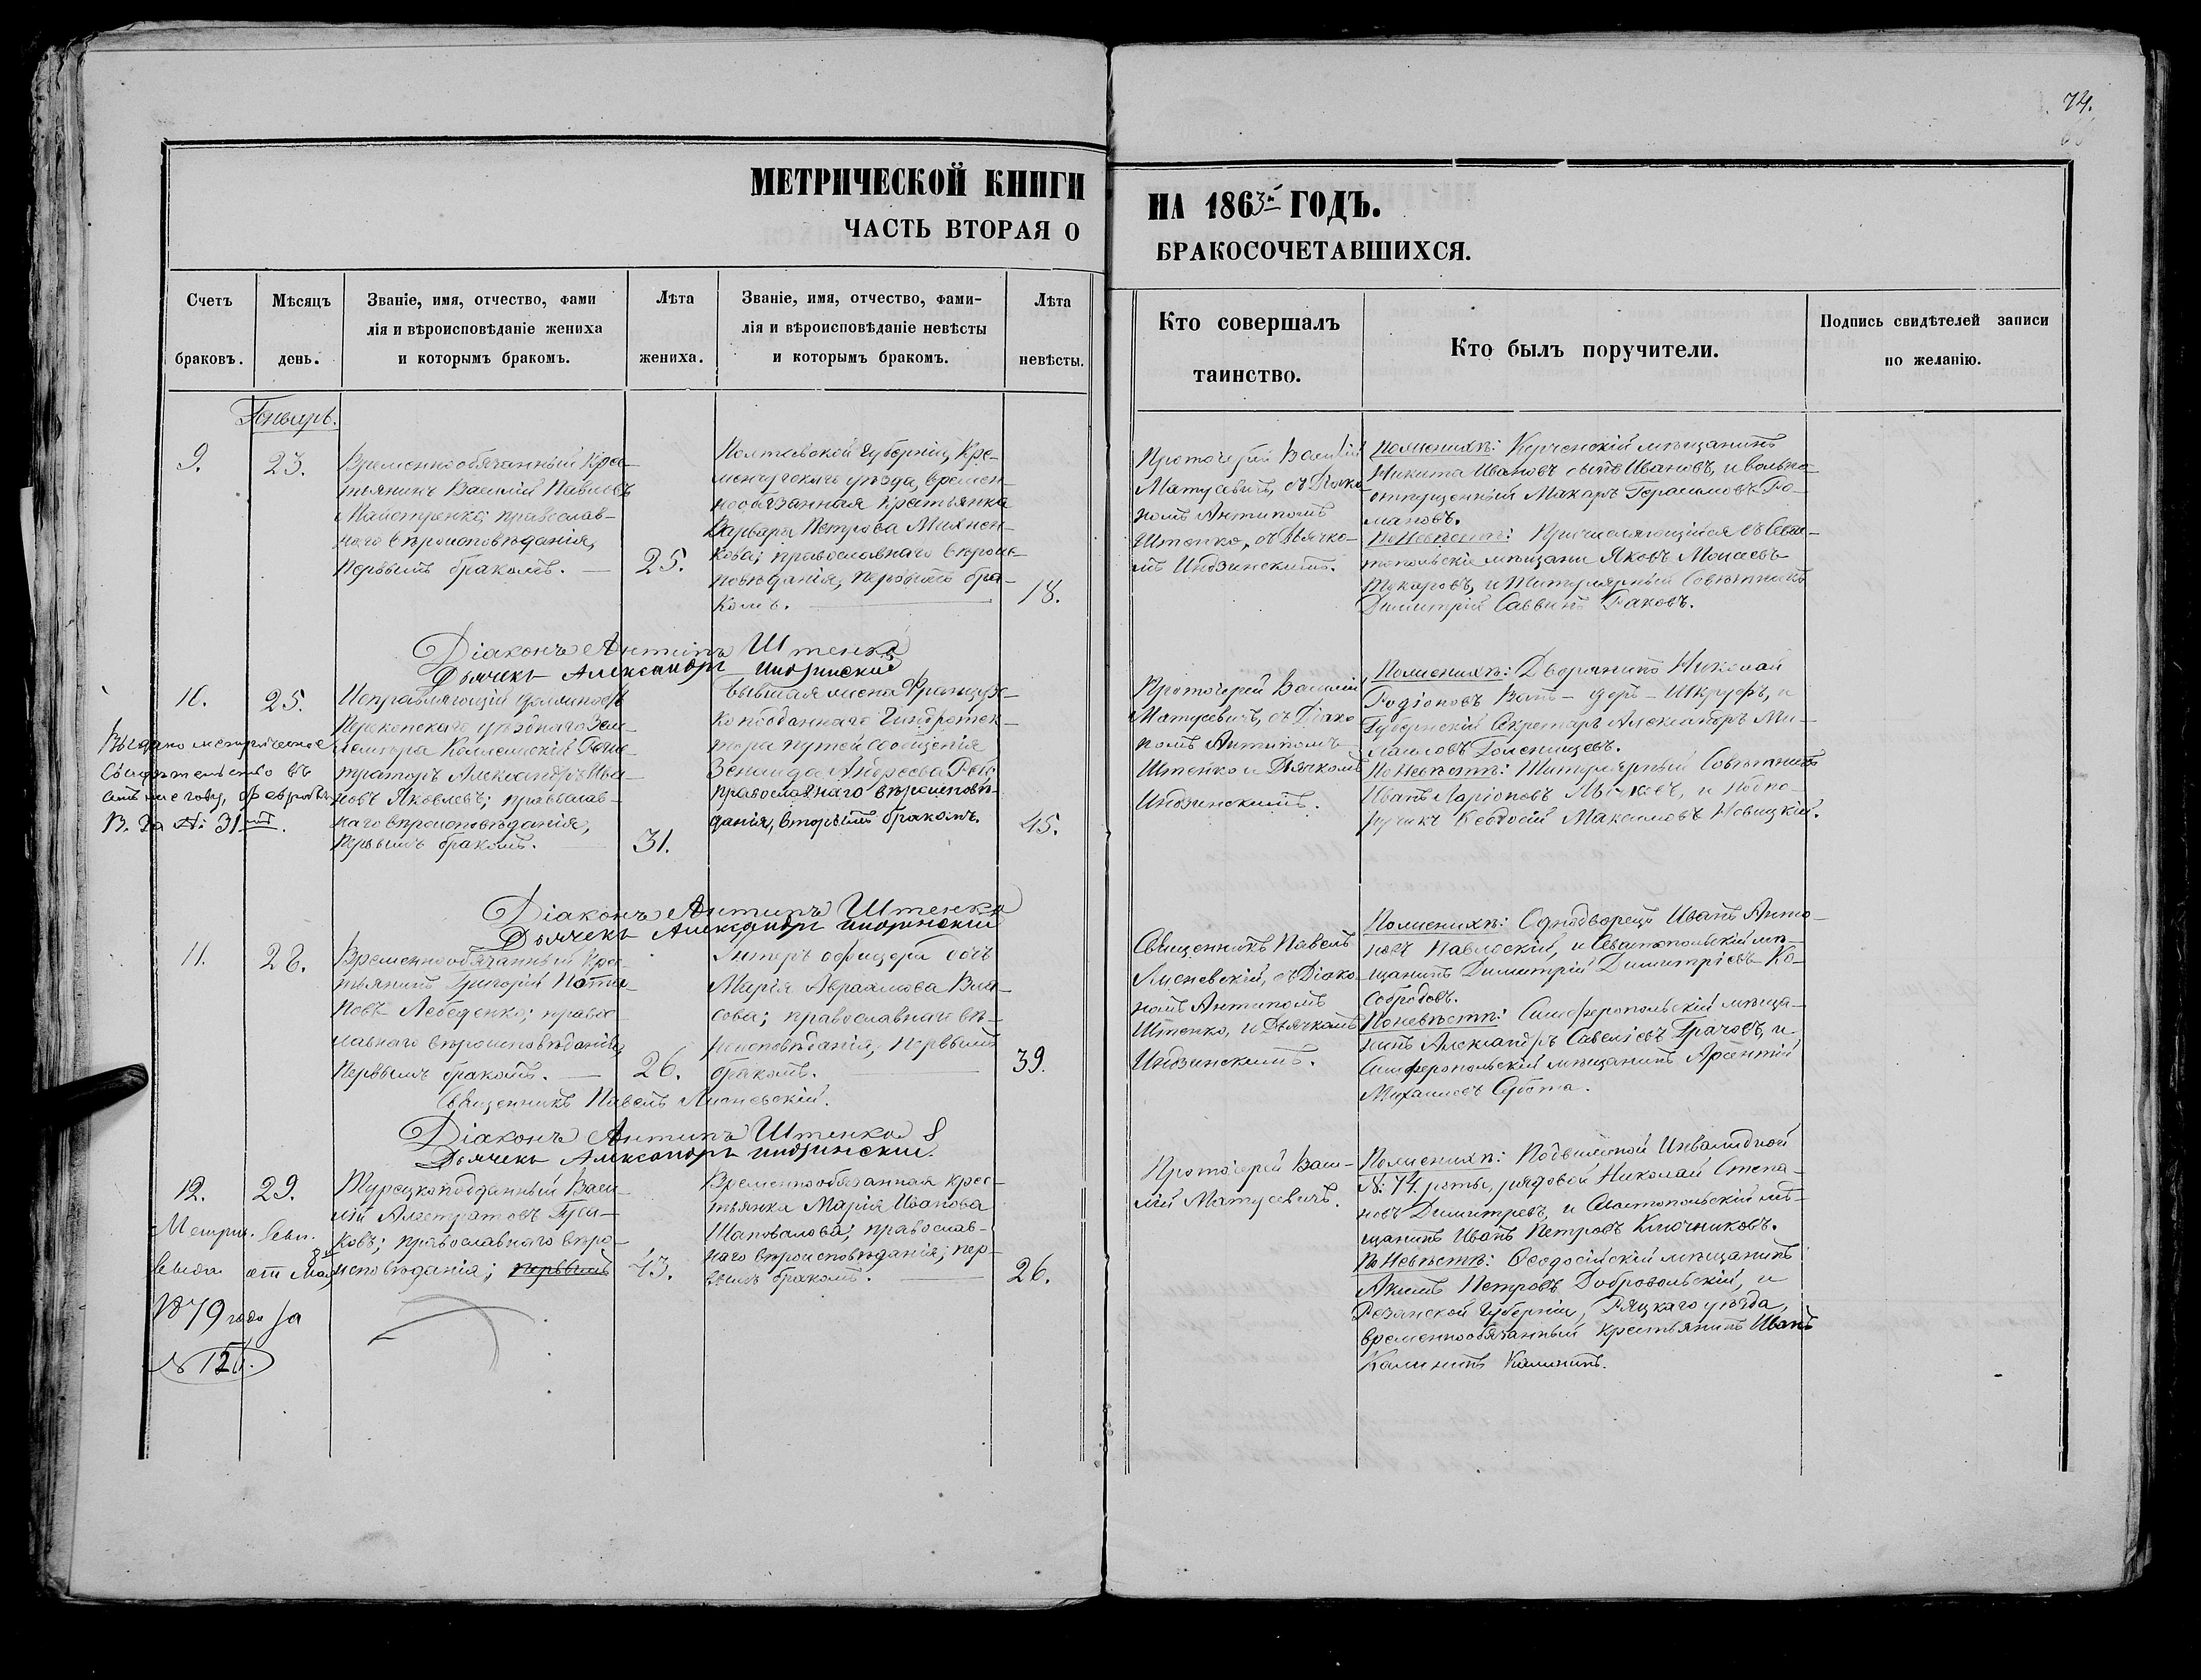 74.
МЕТРИЧЕСКОЙ КНИГИ
ЧАСТЬ ВТОРАЯ О
НА 1863й ГОДЪ.
БРАКОСОЧЕТАВШИХСЯ.
Счетъ
браковъ.
Мѣсяцъ
день.
Званіе, имя, отчество, фами
лія и вѣроисповѣданіе жениха
и которымъ бракомъ.
Лѣта
жениха.
Званіе, имя, отчество, фами-
лія и вѣроисповѣданіе невѣсты
и которымъ бракомъ.
Лѣта
невѣсты.
Кто совершалъ
таинство.
Кто былъ поручители.
Подпись свидѣтелей записи
по желанію.
Генварь.
9.
23.
Временнообязанный Крес-
тьянинъ Василій Павловъ
Майстренко; православ-
наго вѣроисповѣданія,
первымъ бракомъ.
25.
Полтавской Губерніи, Кре-
менчугскаго уѣзда, времен-
нообязанная крестьянка
Варвара Петрова Михнен-
кова; православнаго вѣроис-
повѣданія, первымъ бра-
комъ.
18.
Протоіерей Василій
Матусевичъ, съ Діако-
номъ Антипомъ
Штенко, съ Дьячко-
мъ Индзинскимъ.
По женихѣ: Керченскій мѣщанинъ
Никита Ивановъ сынъ Ивановъ, и вольно-
отпущенный Макаръ Герасимовъ Ро-
мановъ.
По Невѣстѣ: Причисляющійся въ Севас-
топольскіе мѣщане Яковъ Моисеевъ
Токаровъ, и Титулярный Совѣтникъ
Димитрій Саввинъ Раковъ.
Діаконъ Антипъ Штенко
Дьячекъ Александръ Индзинскій
10.
25.
Исправляющій должность
Перекопскаго уѣзднаго Зем-
лемѣра Коллежскій Регис-
траторъ Александръ Ива-
новъ Яковлевъ; православ-
наго вѣроисповѣданія,
первымъ бракомъ.
31.
бывшая жена Француз-
ко подданнаго Кондроттен-
тора путей сообщенія
Зенаида Андреева Рей;
православнаго вѣроисповѣ-
данія, вторымъ бракомъ.
45.
Выдано метрическое
Свидѣтельство въ
семъ же году, февраля
13. За № 31мъ.
Протоіерей Василій
Матусевичъ, съ Діако
номъ Антипомъ
Штенко и Дьячкомъ
Индзинскимъ.
По женихѣ: Дворянинъ Николай
Родіоновъ Ванъ-деръ-Шкруфъ, и
Губернскій Секретарь Александръ Ми-
хаиловъ Голенищевъ.
По Невѣстѣ: Титулярный Совѣтникъ
Иванъ Ларіоновъ Мячковъ, и Подпо-
ручикъ Ѳеодосій Максимовъ Новицкій.
Діаконъ Антипъ Штенко
Дьячекъ Александръ Индзинскій
11.
28.
Временнообязанный Крес-
тьянинъ Григорій Пота-
повъ Лебеденко; правос-
лавнаго вѣроисповѣданія,
первымъ бракомъ.
26.
Унтеръ офицера дочь
Марія Авраамова Вла-
сова; православнаго вѣ-
роисповѣданія, первымъ
бракомъ.
39.
Священникъ Павелъ
Лисневскій, съ Діако-
номъ Антипомъ
Штенко, и Дьячкомъ
Индзинскимъ.
По женихѣ: Однодворецъ Иванъ Анто-
новъ Павловскій, и Севастопольскій мѣ-
щанинъ Димитрій Димитріевъ Ко-
собродовъ.
По невѣстѣ: Симферопольскій мѣща-
нинъ Александръ Савеліевъ Грачовъ, и
Симферопольскій мѣщанинъ Арсентій
Михаиловъ Субота.
Священникъ Павелъ Лисневскій.
Діаконъ Антипъ Штенко
Дьячекъ Александръ Индзинскій.
12.
29.
Турецкоподданный Васи-
лій Алестратовъ Гуса-
ковъ; православнаго вѣро-
исповѣданія; первымъ
43.
Временнообязанная крес-
тьянка Марія Иванова
Шаповалова; православ-
наго вѣроисповѣданія; пер-
вымъ бракомъ.
26.
Метрич. Свид.
выдан от 8 Мая
1879 года за
№ 126.
Протоіерей Васи-
лій Матусевичъ.
По женихѣ: Подвижной Инвалидной
№ 74. роты, рядовой Николай Степа-
новъ Димитревъ, и Севастопольскій мѣ-
щанинъ Иванъ Петровъ Ключниковъ.
По Невѣстѣ: Ѳеодосійскій мѣщанинъ
Акимъ Петровъ Добровольскій, и
Резанской Губерніи, Ряцкаго уѣзда,
временнообязанный крестьянинъ Иванъ
Калининъ Калининъ.